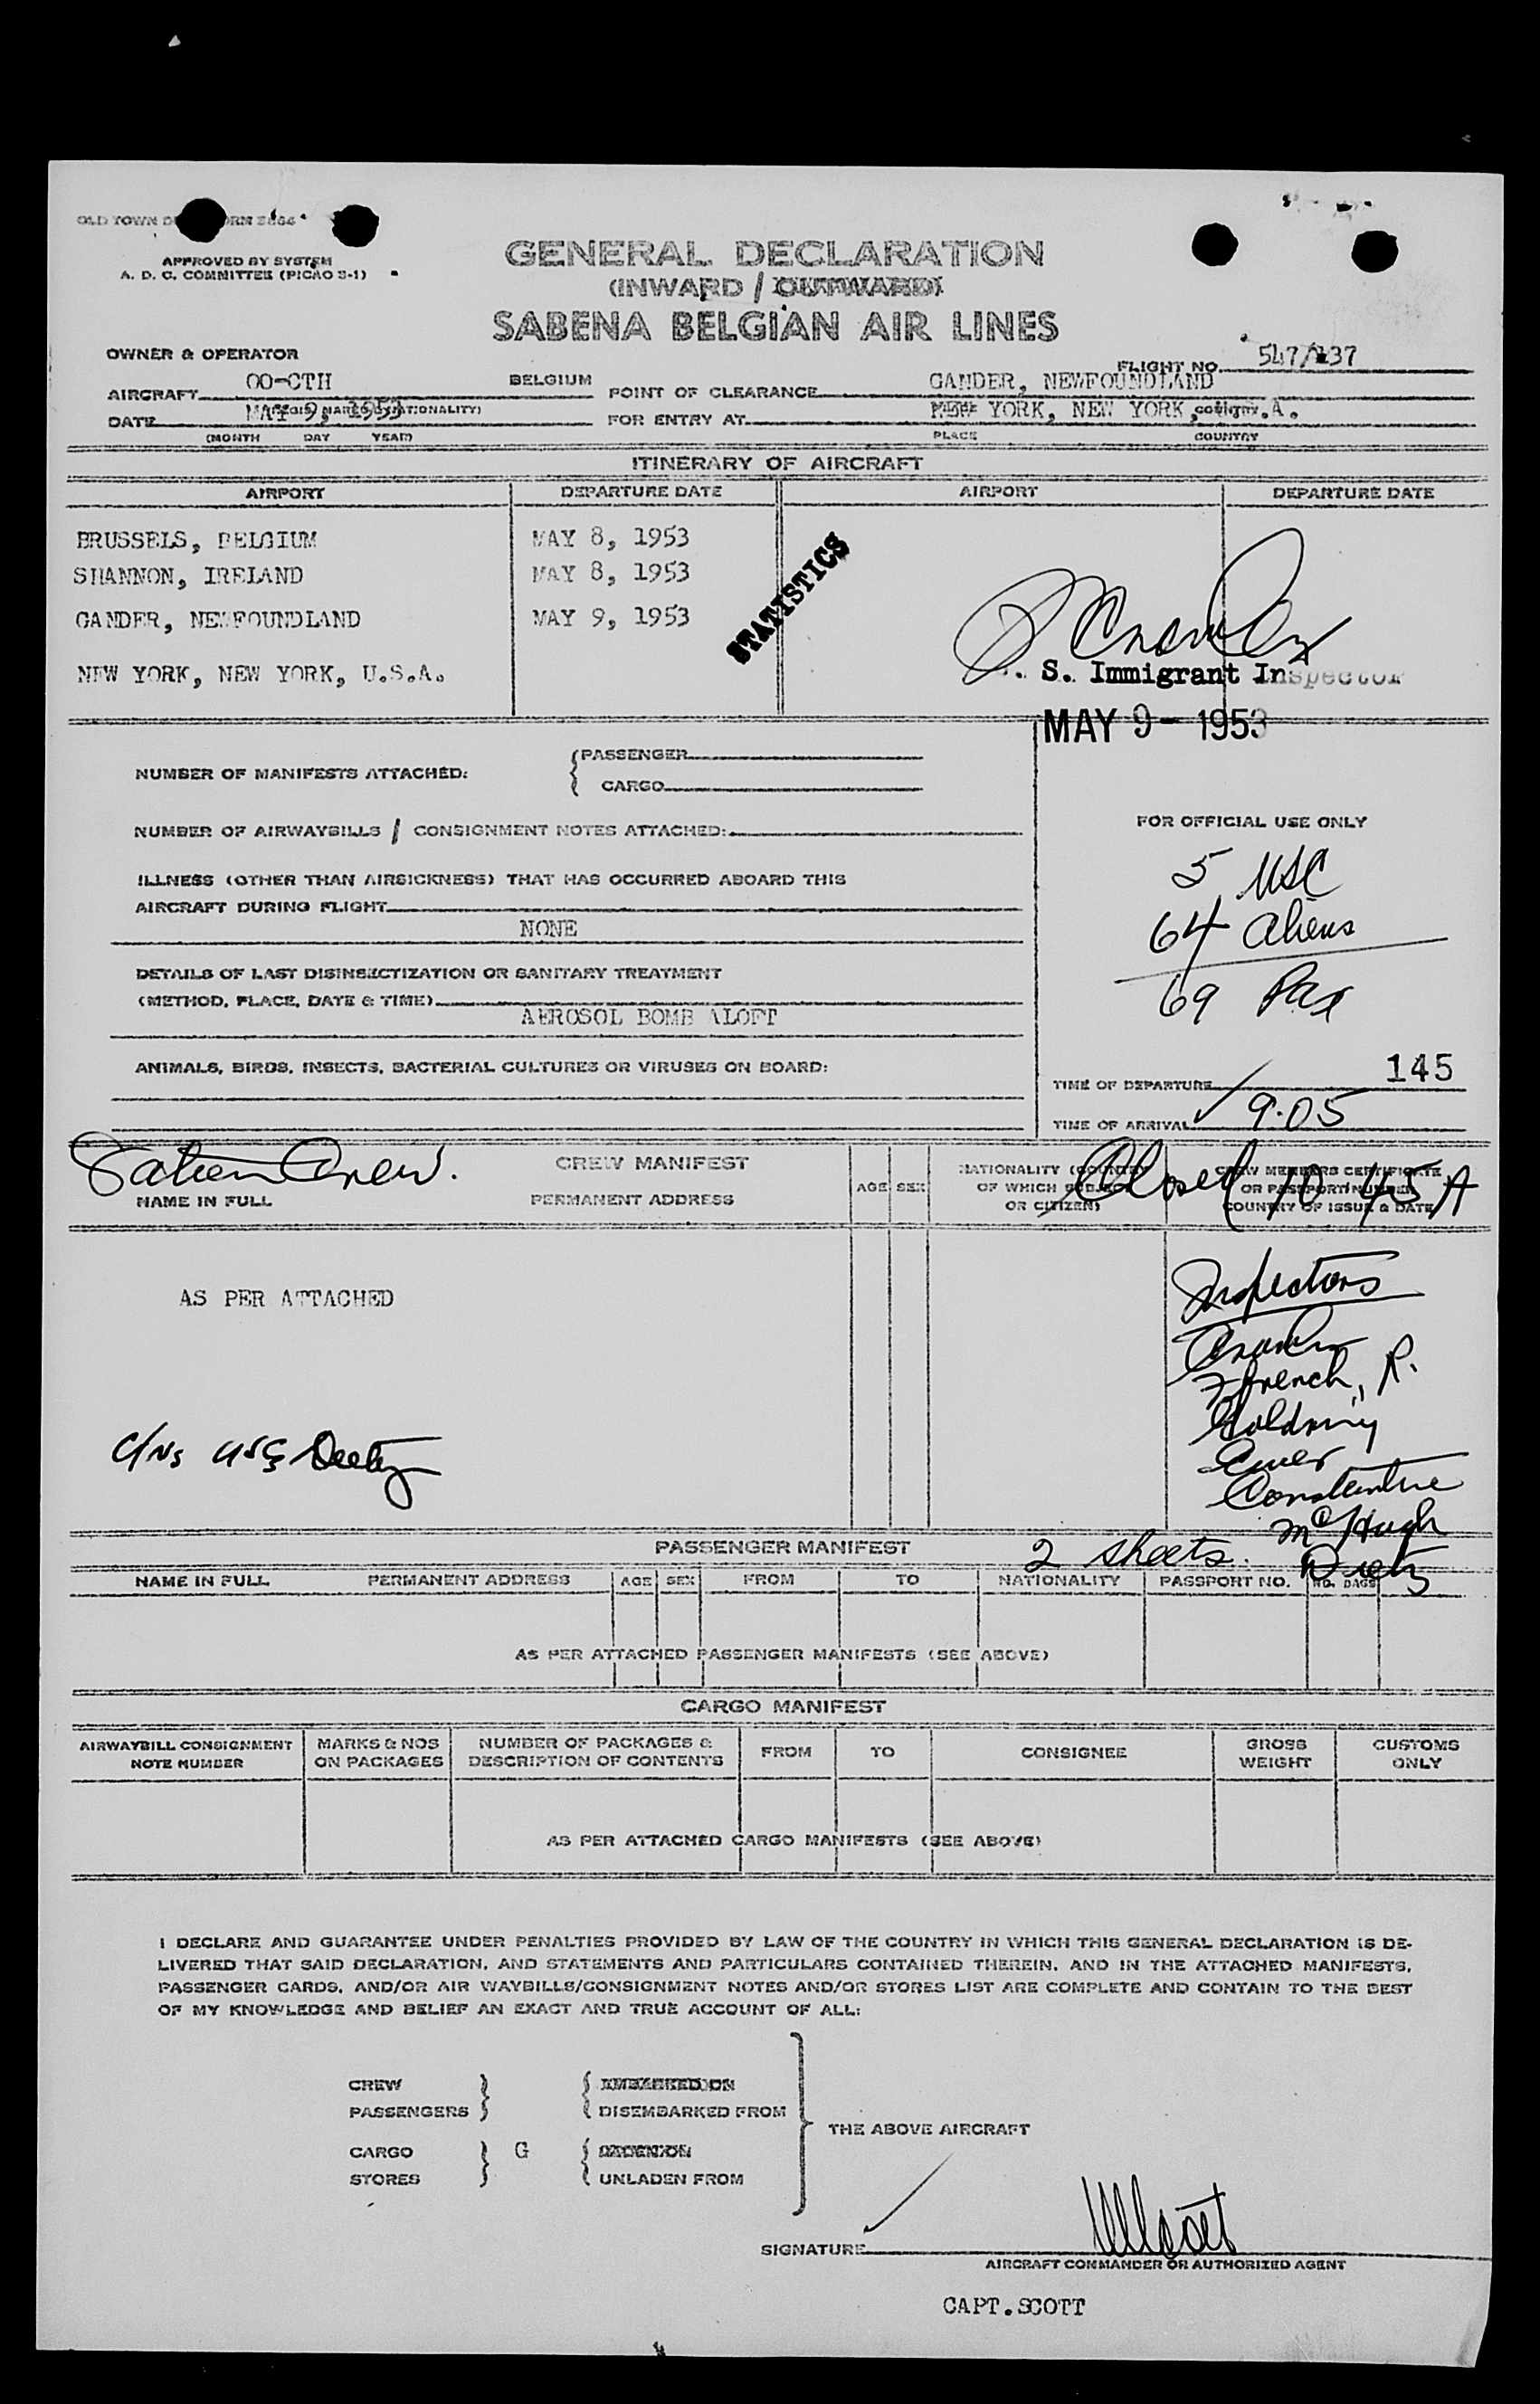 APPROVED BY SYSTEM
A. D. C. COMMITTEE (PICAO S-1)
GENERAL DECLARATION
(INWARD / OUTWARD)
SABENA BELGIAN AIR LINES
OWNER & OPERATOR
FLIGHT NO. 547/
AIRCRAFT OO-CTH BELGIUM
POINT OF CLEARANCE GANDER, NEWFOUNDLAND
DATE MAY 9, 1953
(MONTH DAY YEAR)
FOR ENTRY AT NEW YORK, NEW YORK,
PLACE COUNTRY
ITINERARY OF AIRCRAFT
AIRPORT DEPARTURE DATE AIRPORT DEPARTURE DATE
BRUSSELS, BELGIUM MAY 8, 1953
SHANNON, IRELAND MAY 8, 1953
GANDER, NEWFOUNDLAND MAY 9, 1953
NEW YORK, NEW YORK, U.S.A.
STATISTICS
S. Immigrant Inspector
MAY 9 - 1953
NUMBER OF MANIFESTS ATTACHED: PASSENGER
CARGO
NUMBER OF AIRWAYBILLS / CONSIGNMENT NOTES ATTACHED:
ILLNESS (OTHER THAN AIRSICKNESS) THAT HAS OCCURRED ABOARD THIS
AIRCRAFT DURING FLIGHT
NONE
DETAILS OF LAST DISINSECTIZATION OR SANITARY TREATMENT
(METHOD, PLACE, DATE & TIME)
AEROSOL BOMB ALOFT
ANIMALS, BIRDS, INSECTS, BACTERIAL CULTURES OR VIRUSES ON BOARD:
FOR OFFICIAL USE ONLY
5 USC
64 aliens
69 Pax
145
TIME OF DEPARTURE
TIME OF ARRIVAL 9.05
Closed 10 45 A
CREW MANIFEST
NAME IN FULL PERMANENT ADDRESS AGE SEX
NATIONALITY (COUNTRY
OF WHICH SUBJECT
OR CITIZEN)
CREW MEMBERS CERTIFICATE
OR PASSPORT NUMBER
COUNTRY OF ISSUE & DATE
AS PER ATTACHED
Inspectors
French, R.
Constantine
McHugh
Dietz
PASSENGER MANIFEST 2 sheets.
NAME IN FULL PERMANENT ADDRESS AGE SEX FROM TO NATIONALITY PASSPORT NO. NO. BAGS
AS PER ATTACHED PASSENGER MANIFESTS (SEE ABOVE)
CARGO MANIFEST
AIRWAYBILL CONSIGNMENT
NOTE NUMBER
MARKS & NOS
ON PACKAGES
NUMBER OF PACKAGES &
DESCRIPTION OF CONTENTS
FROM TO CONSIGNEE
GROSS
WEIGHT
CUSTOMS
ONLY
AS PER ATTACHED CARGO MANIFESTS (SEE ABOVE)
I DECLARE AND GUARANTEE UNDER PENALTIES PROVIDED BY LAW OF THE COUNTRY IN WHICH THIS GENERAL DECLARATION IS DE-
LIVERED THAT SAID DECLARATION, AND STATEMENTS AND PARTICULARS CONTAINED THEREIN, AND IN THE ATTACHED MANIFESTS,
PASSENGER CARDS, AND/OR AIR WAYBILLS/CONSIGNMENT NOTES AND/OR STORES LIST ARE COMPLETE AND CONTAIN TO THE BEST
OF MY KNOWLEDGE AND BELIEF AN EXACT AND TRUE ACCOUNT OF ALL:
CREW EMBARKED ON
PASSENGERS DISEMBARKED FROM
THE ABOVE AIRCRAFT
CARGO G
STORES UNLADEN FROM
SIGNATURE
AIRCRAFT COMMANDER OR AUTHORIZED AGENT
CAPT. SCOTT